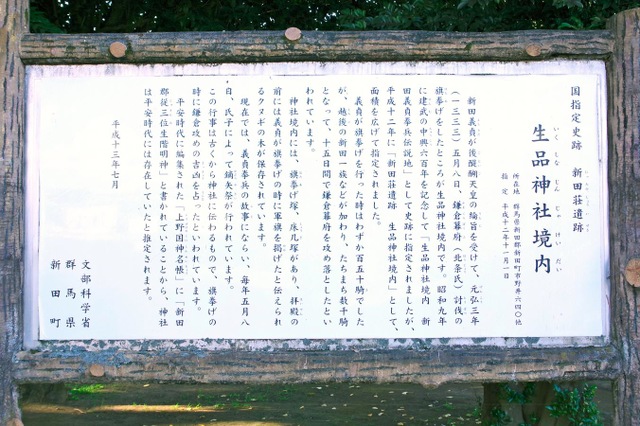 国指定史跡　新田荘遺跡
いくしなじんじゃけいだい
生品神社境内
所在地　群馬県新田郡新田町市野井六四〇他
指　定　平成十二年十一月一日
新田義貞が後醍醐天皇の綸旨を受けて、元弘三年
（一三三三）五月八日、鎌倉幕府（北条氏）討伐の
旗挙げをしたところが生品神社境内です。昭和九年
に建武の中興六百年を記念して「生品神社境内　新
田義貞挙兵伝説地」として史跡に指定されましたが、
平成十二年に「新田荘遺跡　生品神社境内」として、
面積を広げて指定されました。
義貞が旗挙げを行った時はわずか百五十騎でした
が、越後の新田一族などが加わり、たちまち数千騎
となって、十五日間で鎌倉幕府を攻め落としたとい
われています。
神社境内には、旗挙げ塚、床几塚があり、拝殿の
前には義貞が旗挙げの時に軍旗を掲げたと伝えられ
るクヌギの木が保存されています。
現在では、義貞挙兵の故事にならい、毎年五月八
日、氏子によって鏑矢祭が行われています。
この行事は古くから神社に伝わるもので、旗挙げの
時に鎌倉攻めの吉凶を占ったといわれています。
平安時代に編集された「上野国神名帳」に「新田
郡従三位生階明神」と書かれていることから、神社
は平安時代には存在していたと推定されます。
平成十三年七月
文部科学省
群馬県
新田町